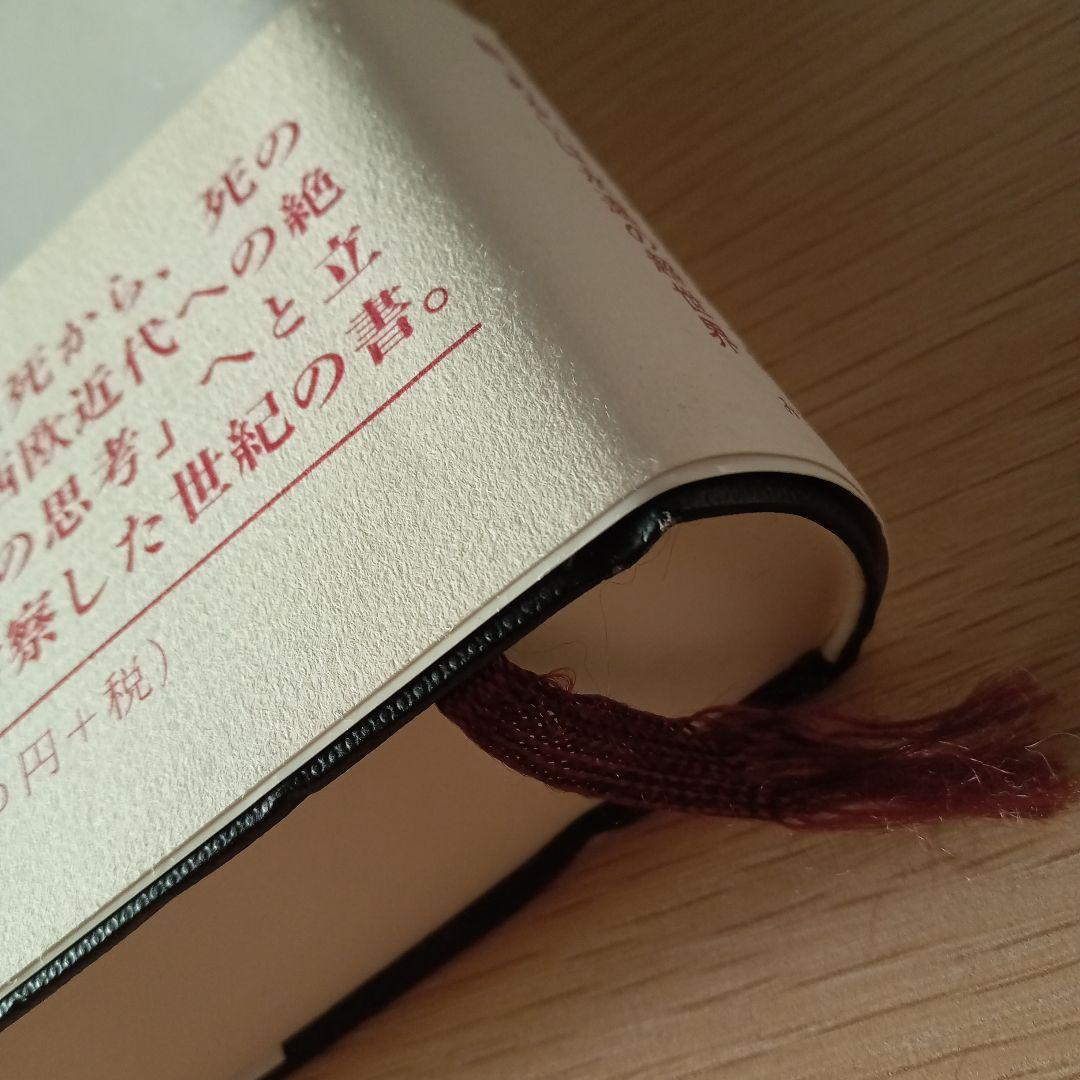 死から、死の
西欧近代への絶
の思考」へと立
察した世紀の書。
円＋税）